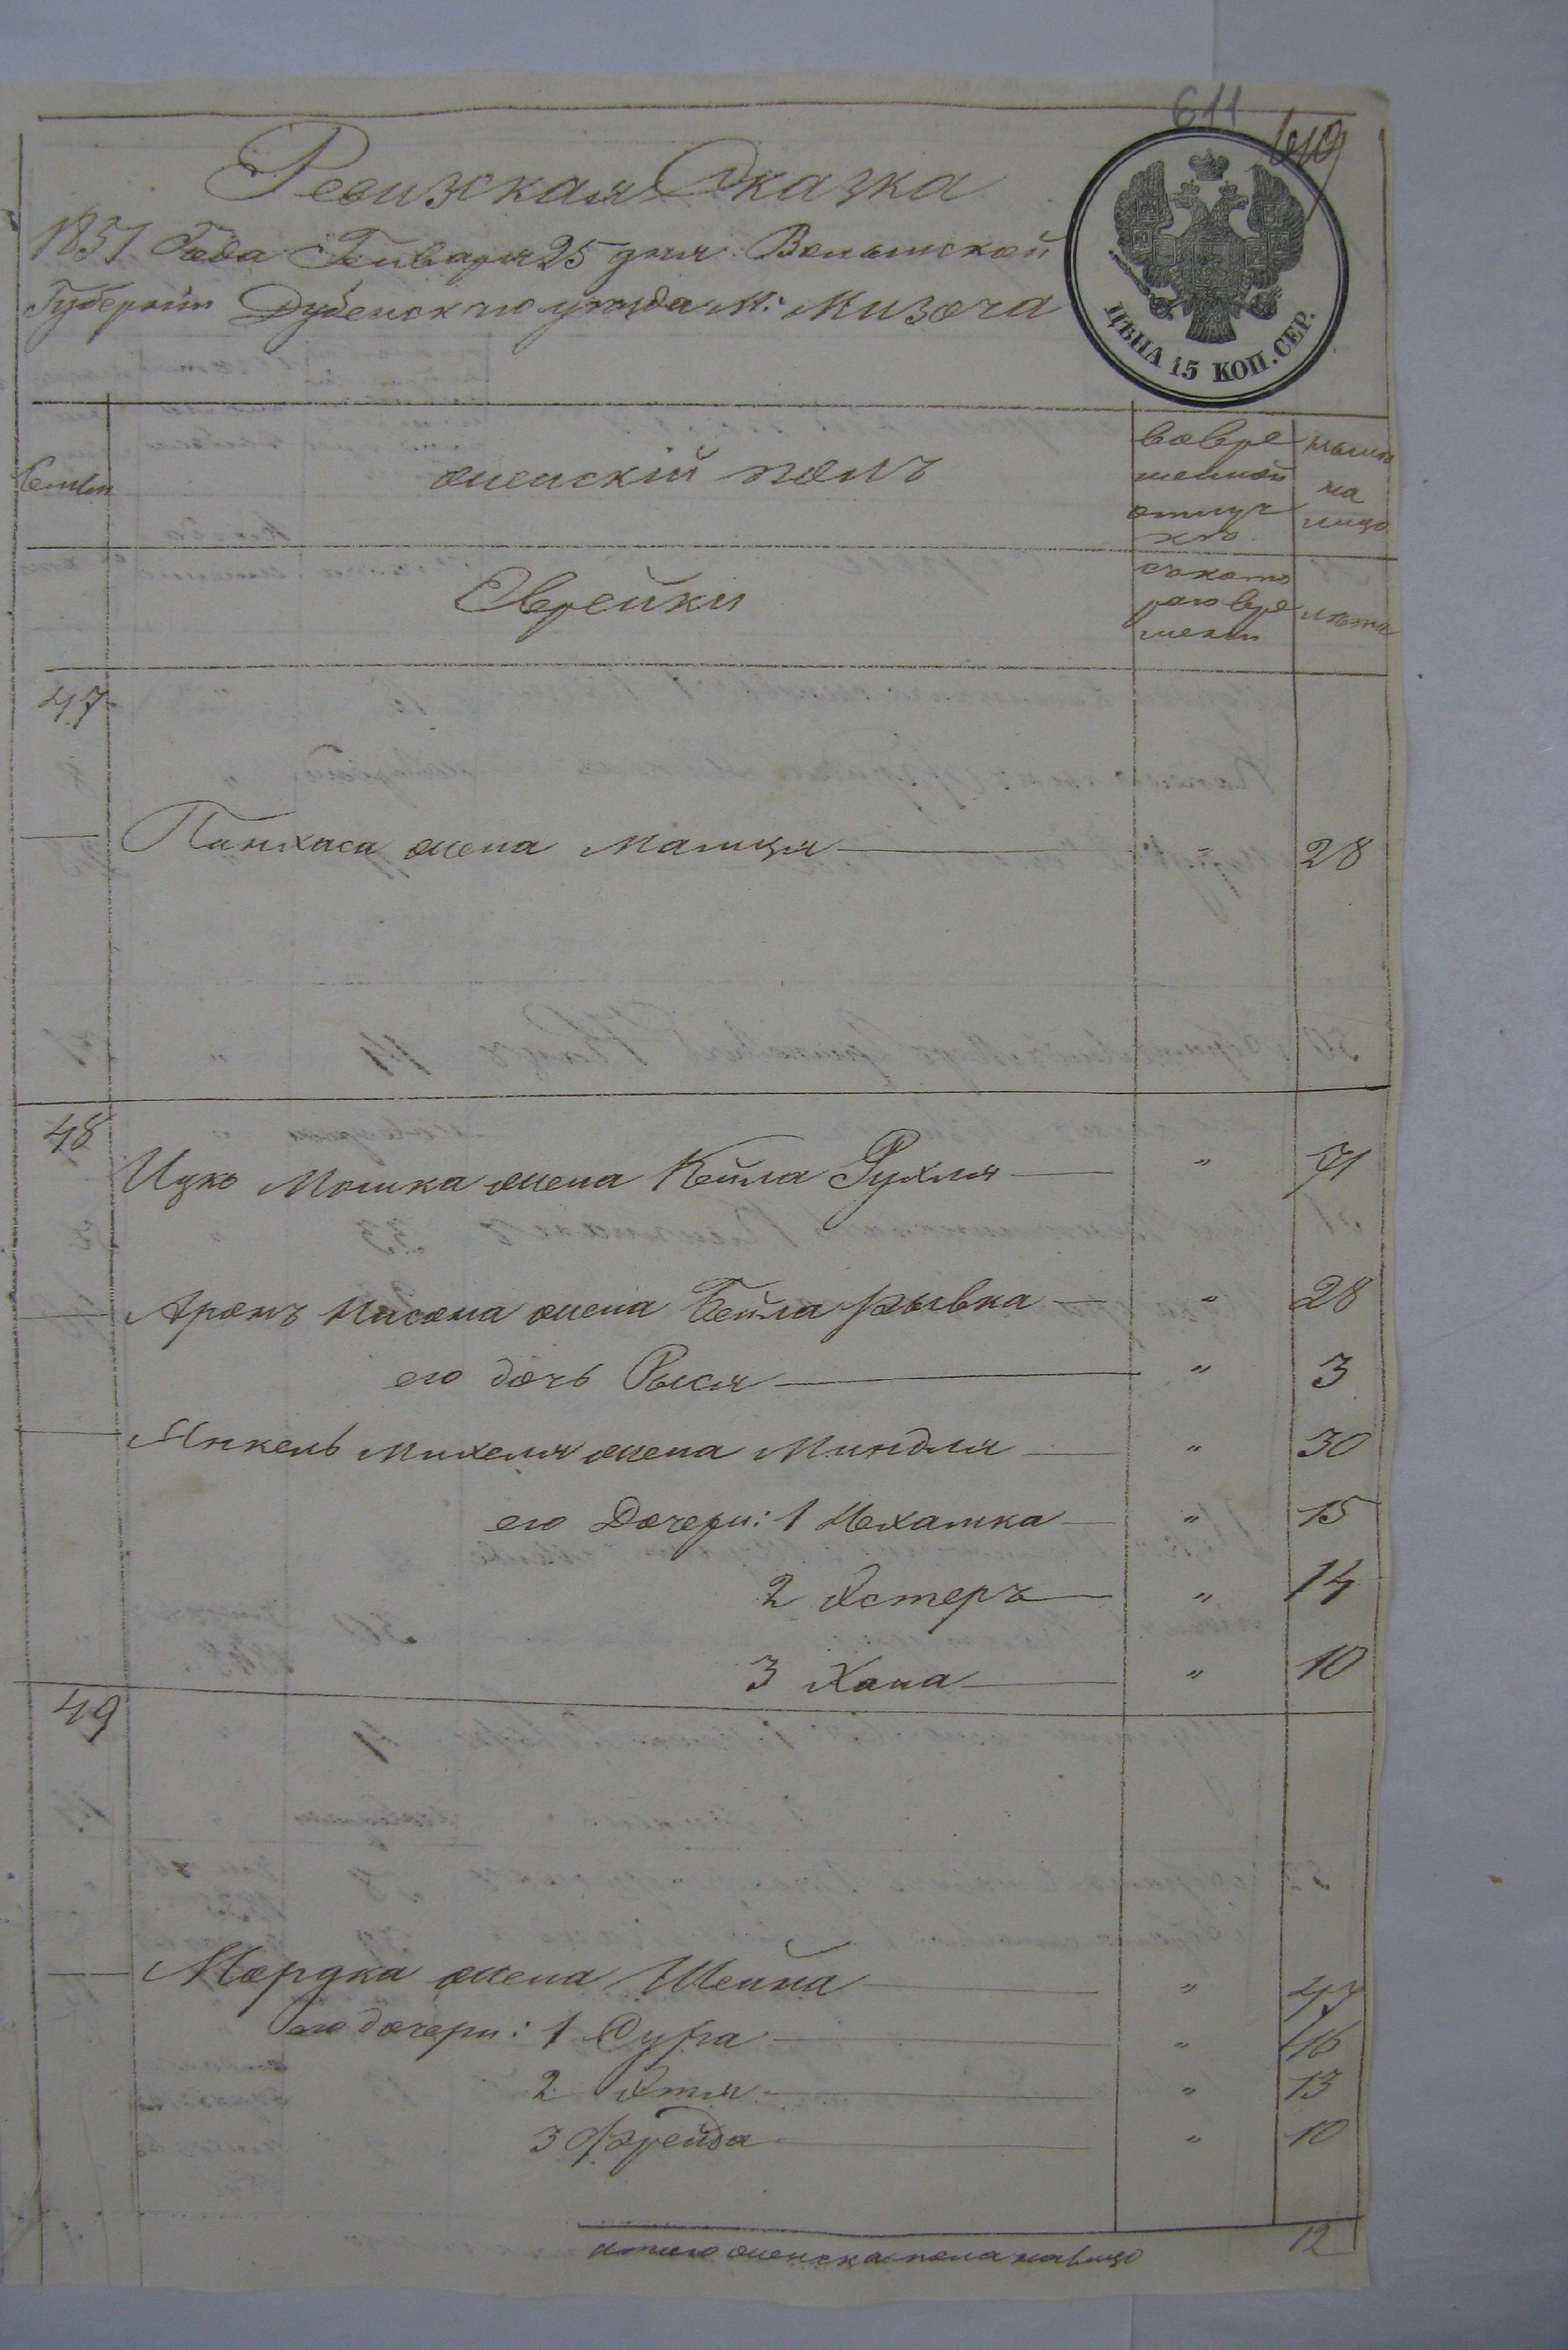 611
610
Ревизская Сказка
1851 Года Генваря 25 дня Волынской
Губернии Дубенского уезда М: Мизоча
ЦѢНА 15 КОП. СЕР.
Семьи
женский полъ
во вре
менной
отлуч
ке
ныне
на
лицо
Еврейки
съ кото
раго вре
мени
лета
47
Пинхаса жена Малця " 28
48
Ицко Мошка жена Кейла Рухля " 71
Аронъ Нисона жена Бейла Рывка " 28
его дочь Рыся " 3
Янкель Михеля жена Миндля " 30
его Дочери: 1 Нехамка " 15
2 Эстеръ " 14
3 Хана " 10
49
Мордка жена Шейна " 47
его дочери: 1 Сура " 16
2 Этля " 13
3 Фрейда " 10
итого женска пола налицо 12